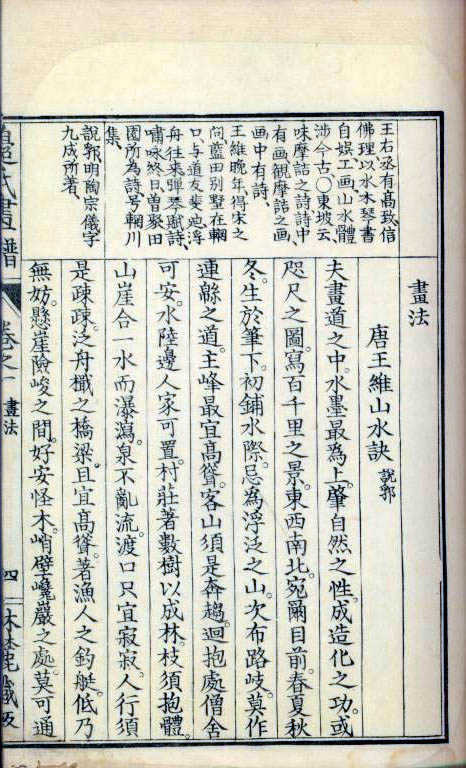 王右丞有髙致信
佛理以水木琴書
自娯工画山水體
渉今古○東坡云
味摩詰之詩詩中
有画観摩詰之画
画中有詩
王維晩年得宋之
問藍田別墅在輞
口与道友裴迪浮
舟往来弾琴賦詩
嘯咏終日曽聚田
園所為詩号輞川
集
說郛明陶宗儀字
九成所著
畫法
唐王維山水訣 說郛
夫畫道之中。水墨最為上。肇自然之性。成造化之功。或
咫尺之圖。寫百千里之景。東西南北。宛爾目前。春夏秋
冬。生於筆下。初鋪水際。忌為浮泛之山。次布路岐。莫作
連緜之道。主峰最宜髙聳。客山須是奔趨。迴抱處僧舍
可安。水陸邊人家可置。村莊著數樹以成林。枝須抱體。
山崖合一水而瀑瀉。泉不亂流。渡口只宜寂寂。人行須
是疎疎。泛舟檝之橋梁。且宜髙聳。著漁人之釣艇。低乃
無妨。懸崖險峻之間。好安怪木。峭壁巉巖之處。莫可通
卷之一 畫法 四